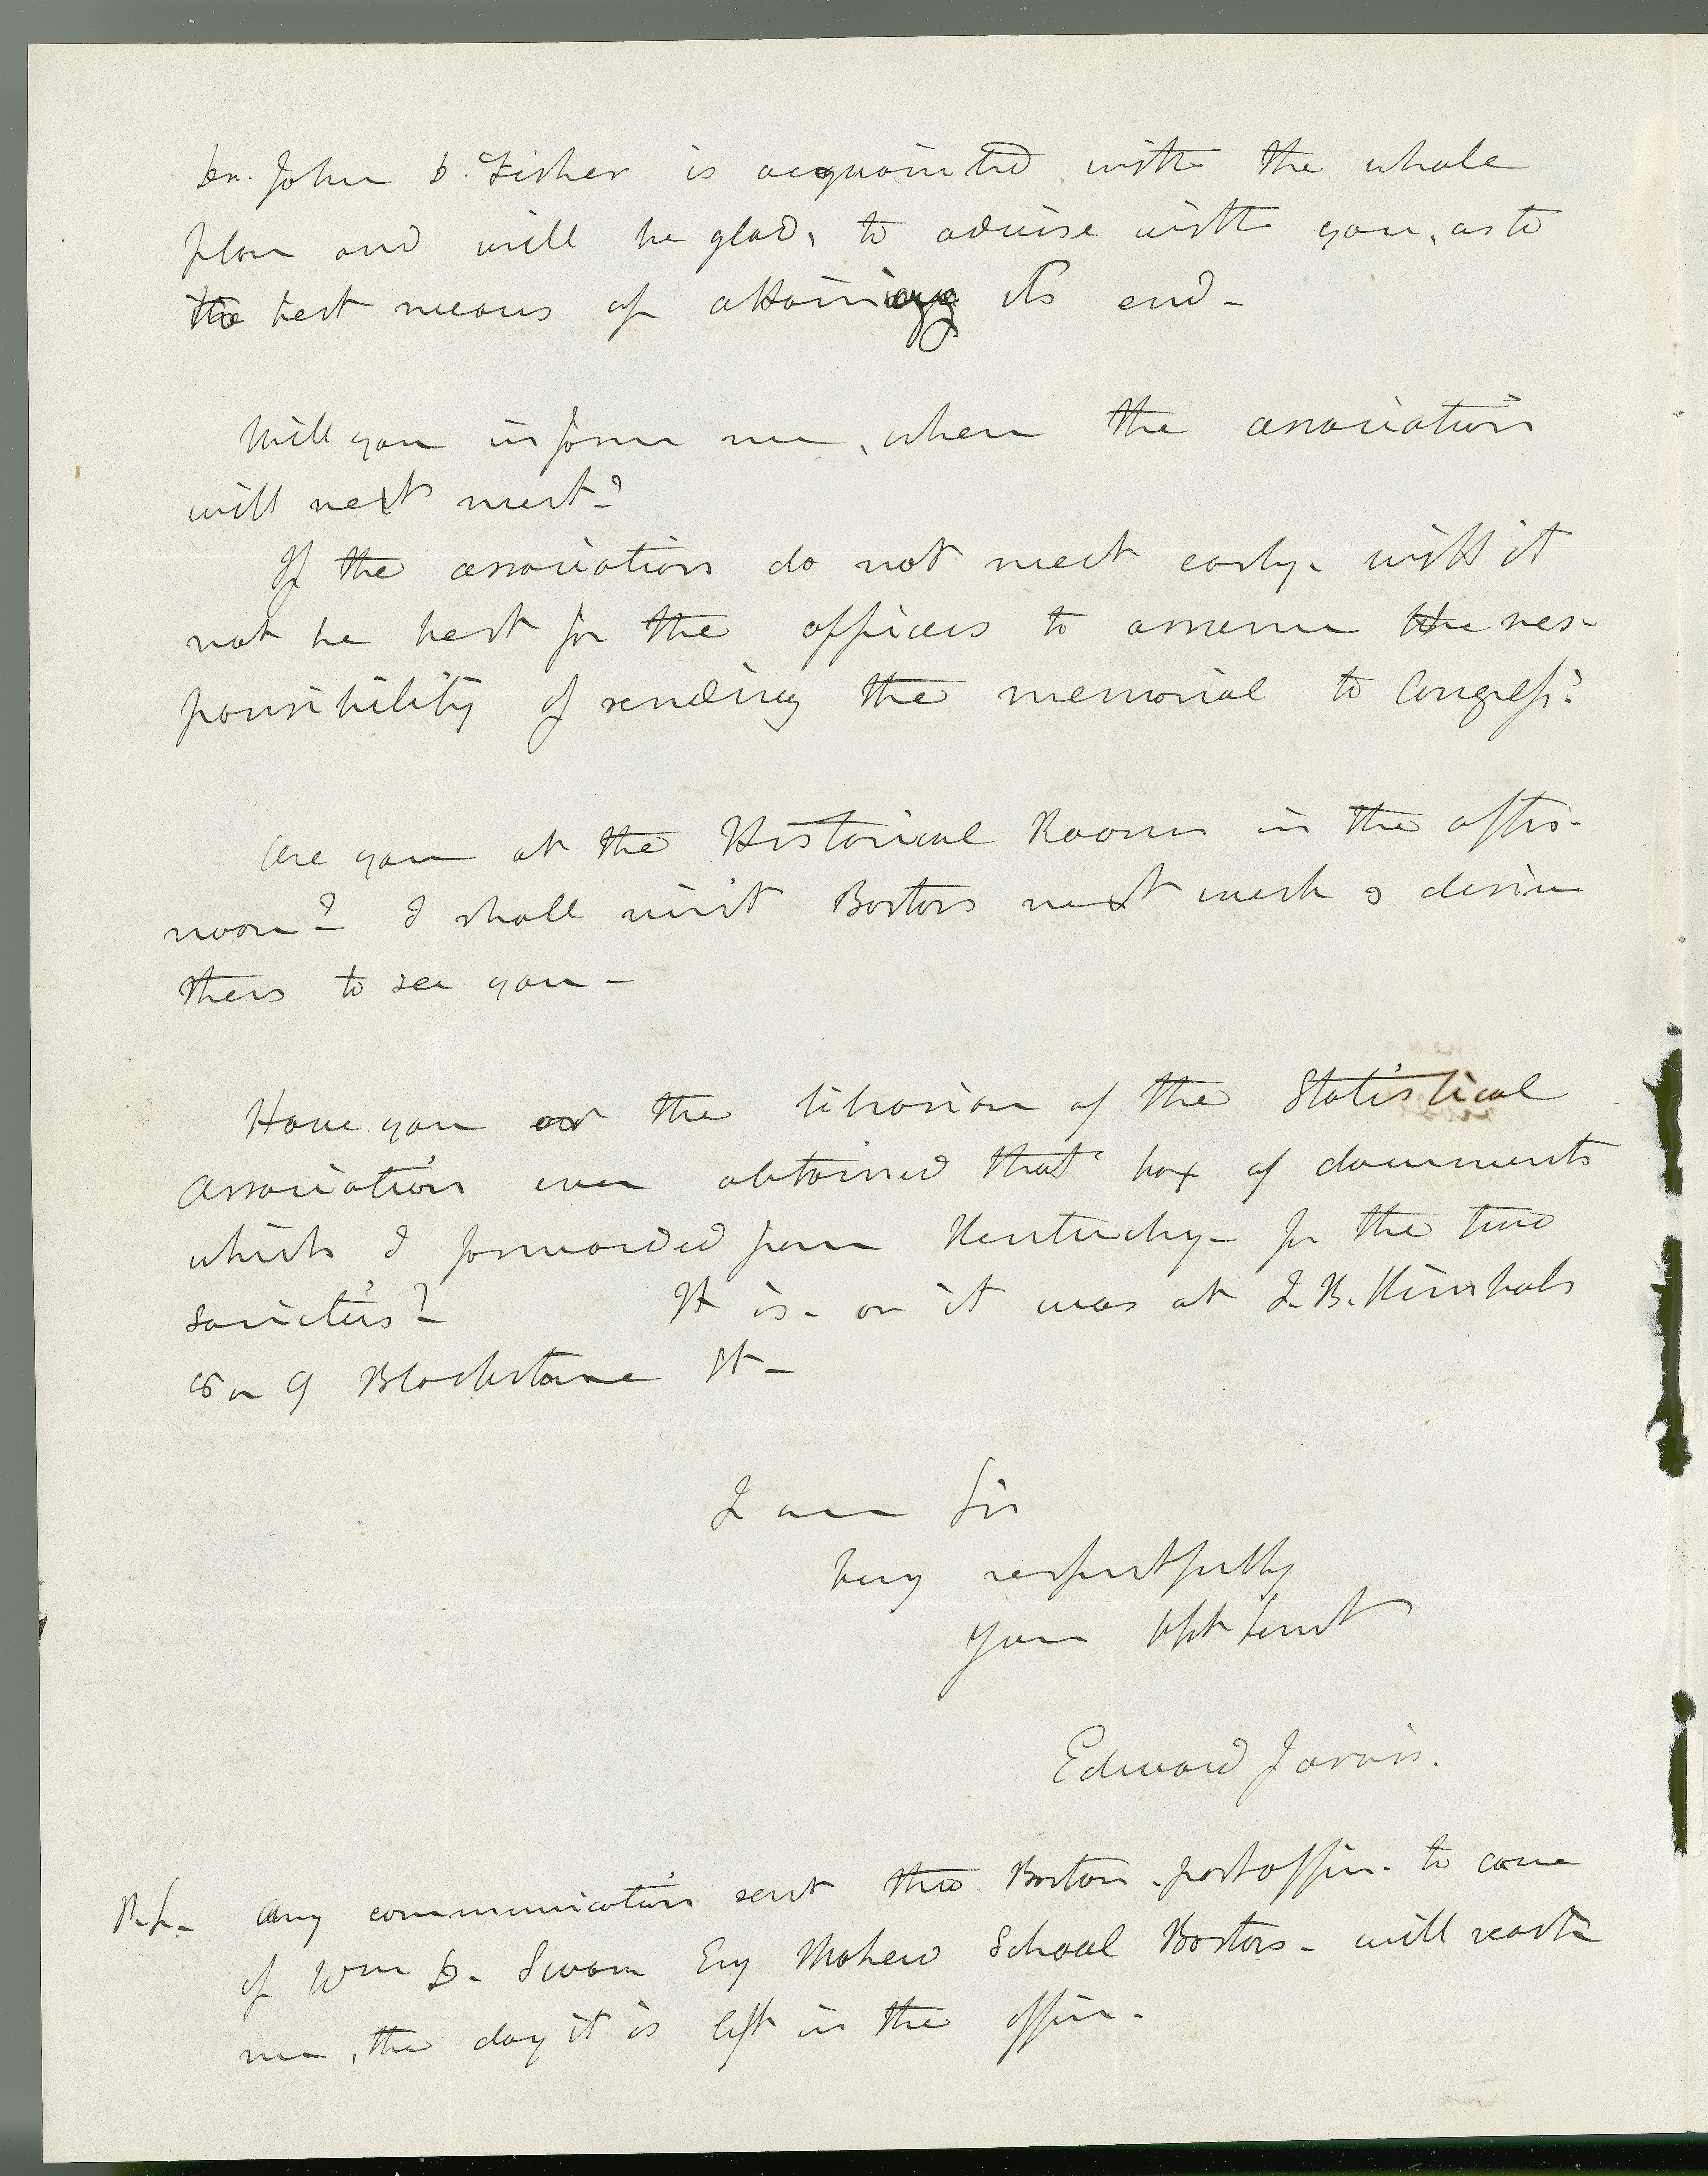 Dr. John D. Fisher is acquainted with the whole
plan and will be glad, to advise with you, as to
the best means of attaining its end-
Will you inform me, when the association
will next meet?
If the association do not meet early- will it
not be best for the officers to assume the res-
ponsibility of sending the memorial to Congress?
Are you at the Historical Rooms in the after-
noon? I shall visit Boston next week & desire
then to see you-
Have you or the librarian of the Statistical
Association ever obtained that box of documents
which I forwarded from Kentucky- for the two
societies? It is- or it was at J. B. Kimbals
or 9 Blackstone St-
I am Sir
very respectfully
your obt servt
Edward Jarvis.
P.S. Any communication sent thro Boston post office- to care
of Wm D. Swan Esq Mahew School Boston- will reach
me, the day it is left in the office.